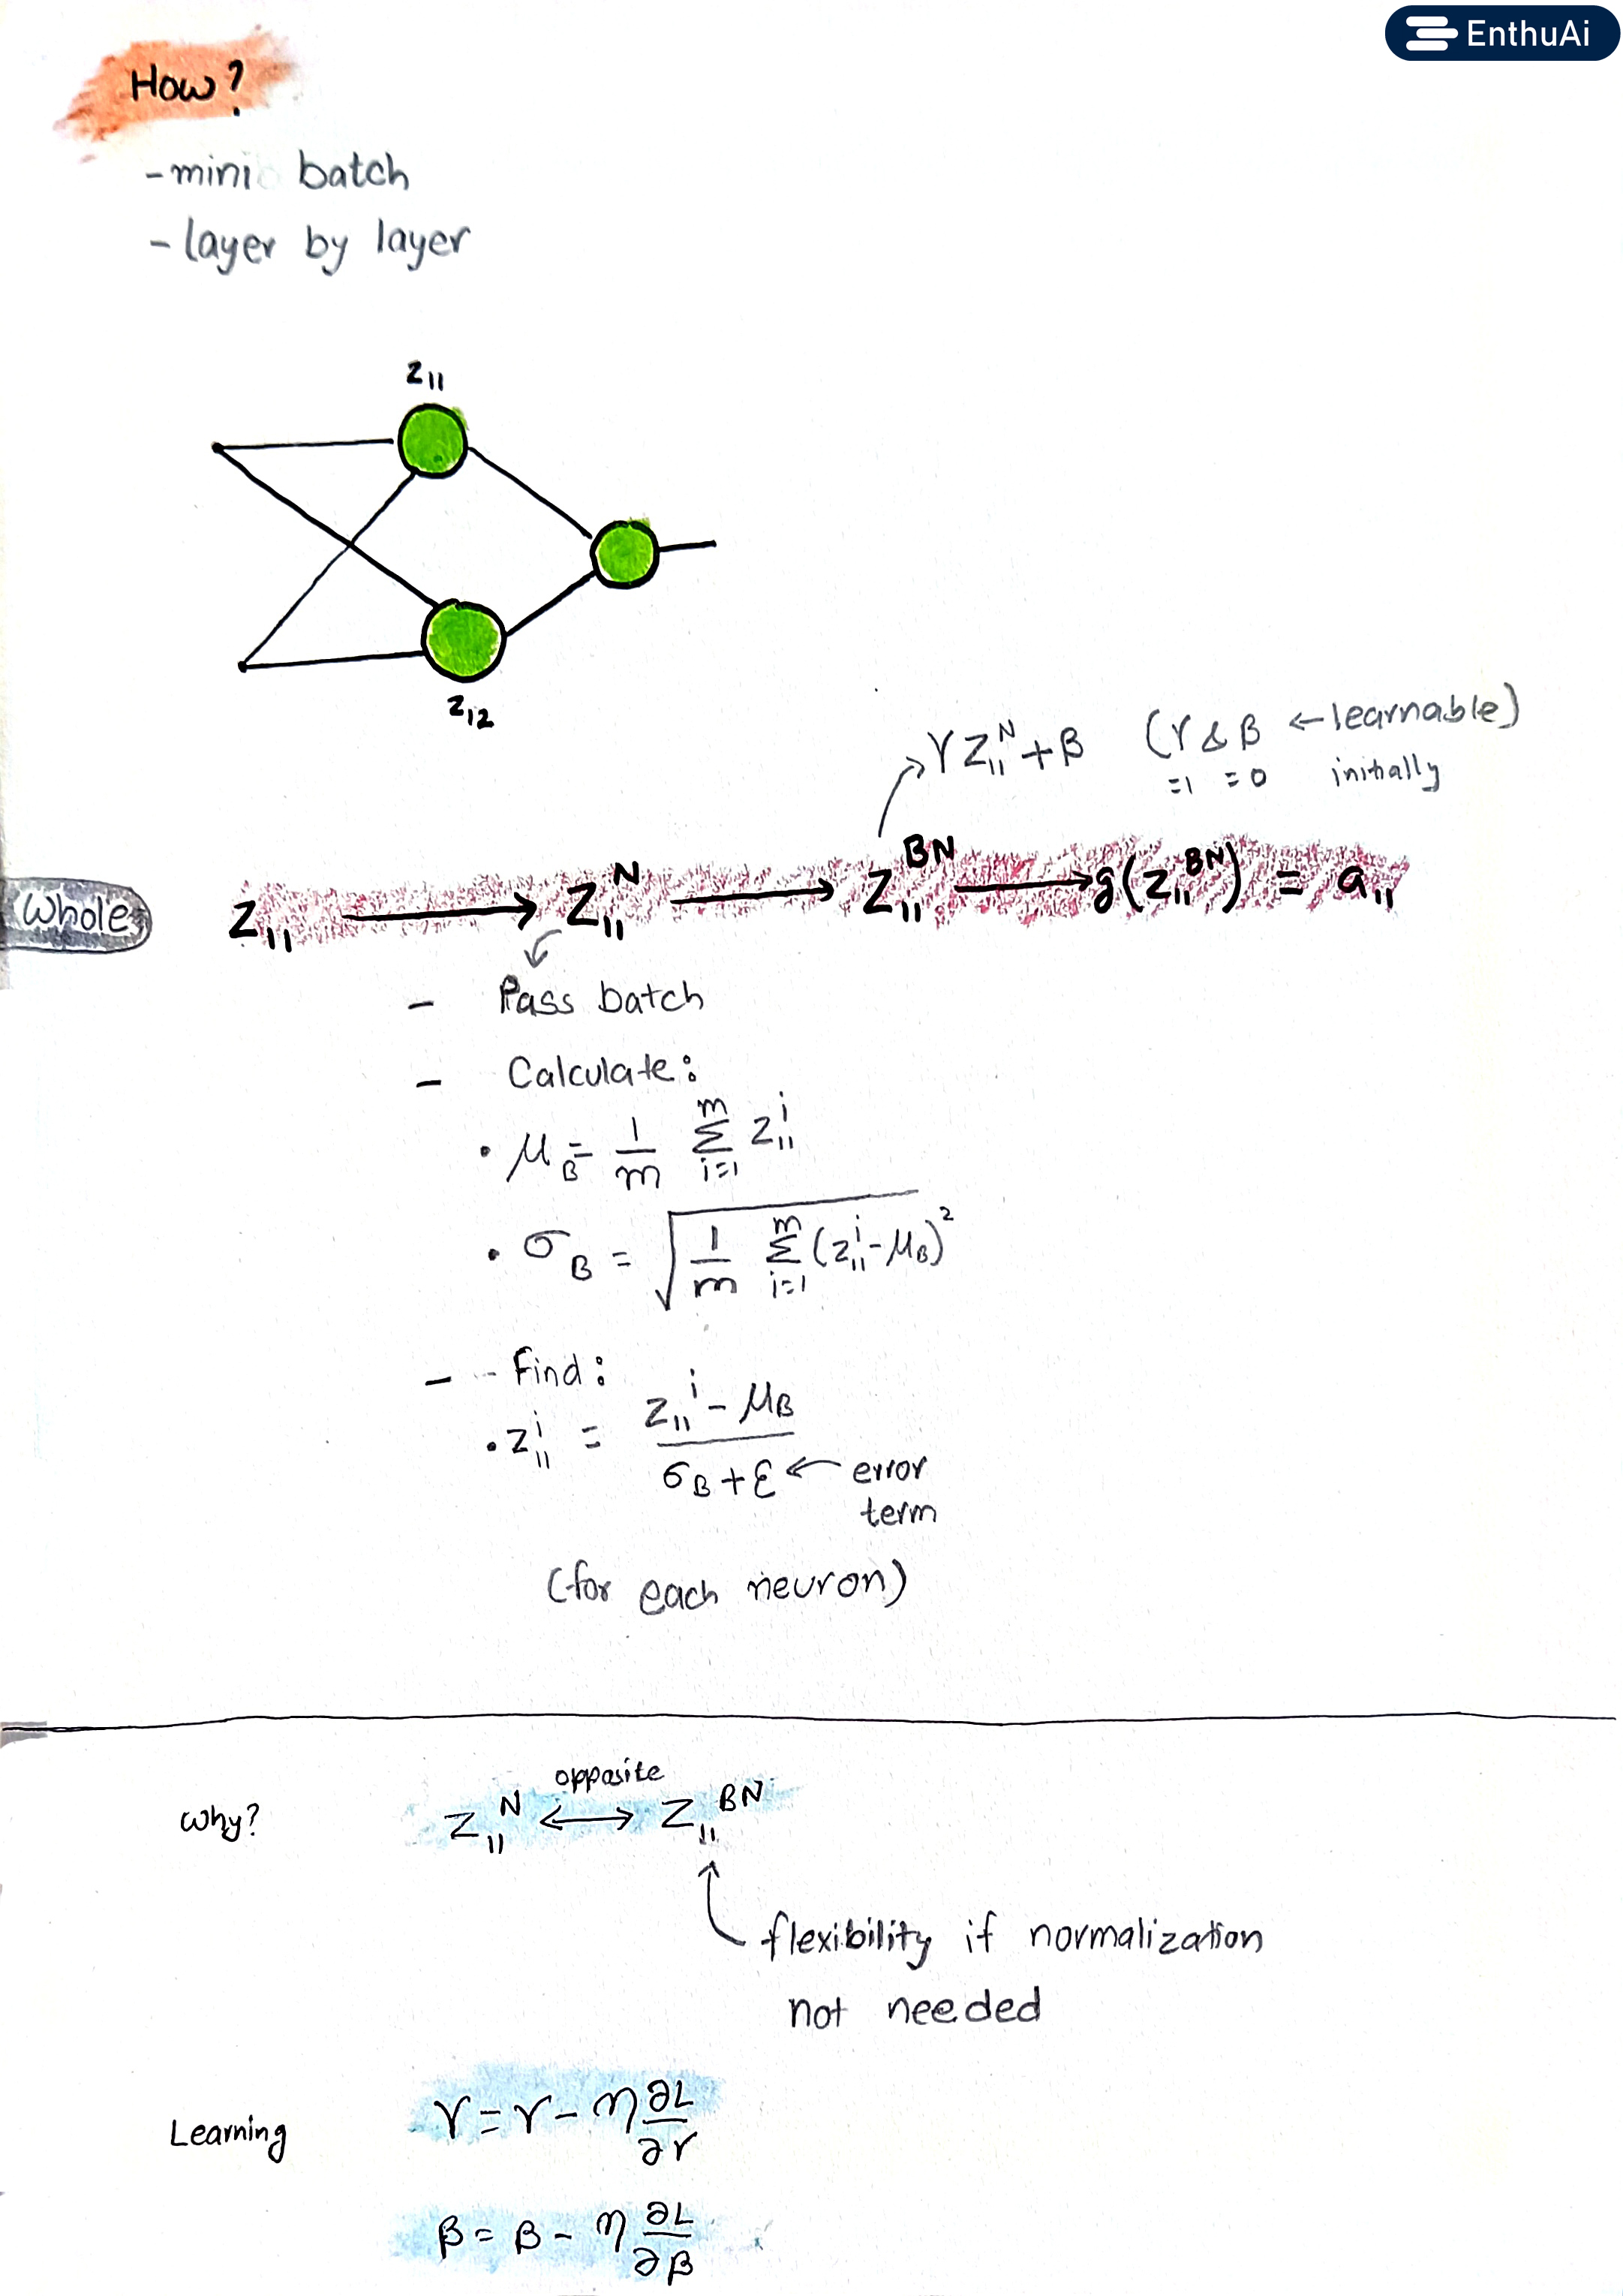 EnthuAi
How?
- mini batch
- layer by layer
z₁₁
z₁₂
γ z₁₁ᴺ + β (γ & β ← learnable)
=1 =0 initially
Whole
z₁₁ → z₁₁ᴺ → z₁₁ᴮᴺ → g(z₁₁ᴮᴺ) = a₁₁
- Pass batch
- Calculate:
• μ_B = 1/m Σ_{i=1}^{m} z₁₁ⁱ
• σ_B = √(1/m Σ_{i=1}^{m} (z₁₁ⁱ - μ_B)²)
- Find:
• z₁₁ⁱ = (z₁₁ⁱ - μ_B) / (σ_B + ε) ← error
term
(for each neuron)
Why? z₁₁ᴺ ←opposite→ z₁₁ᴮᴺ
flexibility if normalization
not needed
Learning γ = γ - η ∂L/∂γ
β = β - η ∂L/∂β